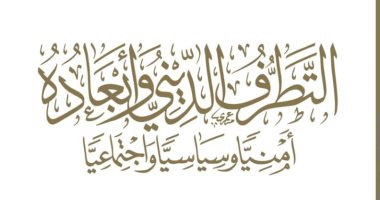 التَّطَرُّفُ الدِّينِيُّ وَأَبْعَادُهُ
أَمْنِيًّا وَسِيَاسِيًّا وَاجْتِمَاعِيًّا